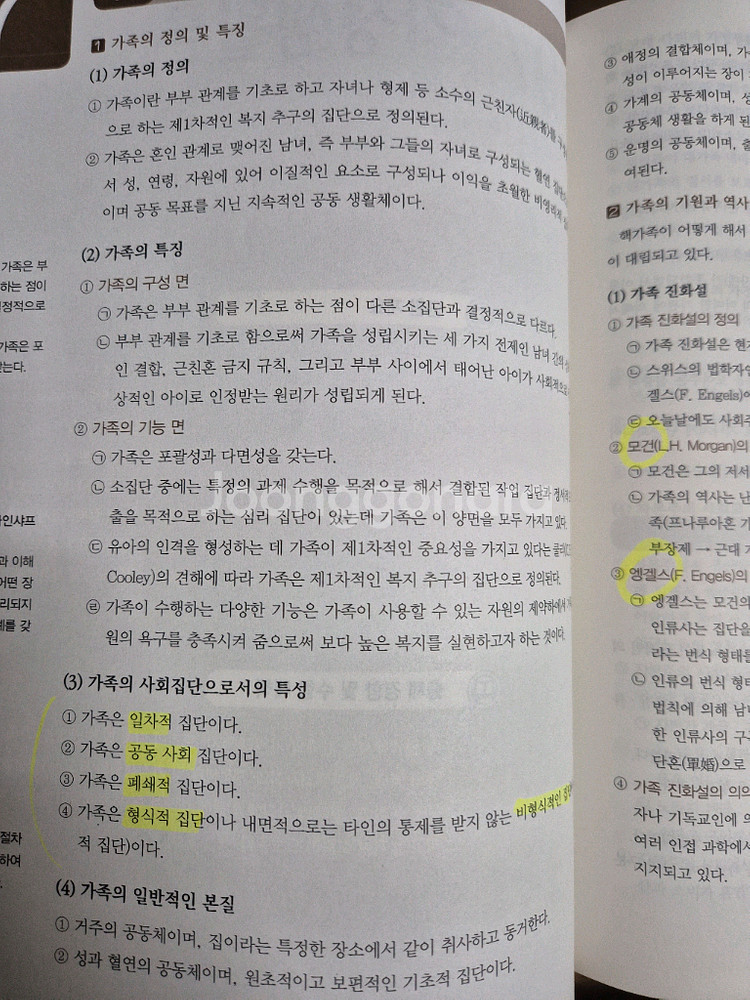 1 가족의 정의 및 특징
(1) 가족의 정의
① 가족이란 부부 관계를 기초로 하고 자녀나 형제 등 소수의 근친자(近親者)를
으로 하는 제1차적인 복지 추구의 집단으로 정의된다.
② 가족은 혼인 관계로 맺어진 남녀, 즉 부부와 그들의 자녀로 구성되는 혈연 집단
서 성, 연령, 자원에 있어 이질적인 요소로 구성되나 이익을 초월한 비영리적
이며 공동 목표를 지닌 지속적인 공동 생활체이다.
(2) 가족의 특징
① 가족의 구성 면
㉠ 가족은 부부 관계를 기초로 하는 점이 다른 소집단과 결정적으로 다르다.
㉡ 부부 관계를 기초로 함으로써 가족을 성립시키는 세 가지 전제인 남녀 간의
인 결합, 근친혼 금지 규칙, 그리고 부부 사이에서 태어난 아이가 사회적으로
상적인 아이로 인정받는 원리가 성립되게 된다.
② 가족의 기능 면
㉠ 가족은 포괄성과 다면성을 갖는다.
㉡ 소집단 중에는 특정의 과제 수행을 목적으로 해서 결합된 작업 집단과
출을 목적으로 하는 심리 집단이 있는데 가족은 이 양면을 모두 가지고 있다.
㉢ 유아의 인격을 형성하는 데 가족이 제1차적인 중요성을 가지고 있다는
Cooley)의 견해에 따라 가족은 제1차적인 복지 추구의 집단으로 정의된다.
㉣ 가족이 수행하는 다양한 기능은 가족이 사용할 수 있는 자원의 제약하에서
원의 욕구를 충족시켜 줌으로써 보다 높은 복지를 실현하고자 하는 것이다.
(3) 가족의 사회집단으로서의 특성
① 가족은 일차적 집단이다.
② 가족은 공동 사회 집단이다.
③ 가족은 폐쇄적 집단이다.
④ 가족은 형식적 집단이나 내면적으로는 타인의 통제를 받지 않는 비형식적인
적 집단)이다.
(4) 가족의 일반적인 본질
① 거주의 공동체이며, 집이라는 특정한 장소에서 같이 취사하고 동거한다.
② 성과 혈연의 공동체이며, 원초적이고 보편적인 기초적 집단이다.
가족은 부
하는 점이
정적으로
가족은 포
는다.
인샤프
과 이해
어떤 장
리되지
를 갖
절차
하여
③ 애정의 결합체이며,
성이 이루어지는 장이
④ 가계의 공동체이며,
공동체 생활을 하게 된
⑤ 운명의 공동체이며,
여된다.
2 가족의 기원과 역사
해가족이 어떻게 해서
이 대립되고 있다.
(1) 가족 진화설
① 가족 진화설의 정의
㉠ 가족 진화설은
㉡ 스위스의 법학자인
겔스(F. Engels)에
㉢ 오늘날에도 사회
② 모건(L.H. Morgan)의
㉠ 모건은 그의 저서
㉡ 가족의 역사는 난
족(프나루아혼 가
부장제 → 근대
③ 엥겔스(F. Engels)의
㉠ 엥겔스는 모건의
인류사는 집단을
라는 번식 형태를
㉡ 인류의 번식 형태
법칙에 의해 남녀
한 인류사의 구
단혼(單婚)으로
④ 가족 진화설의 의의
자나 기독교인에 의
여러 인접 과학에서
지지되고 있다.
Joonggonara